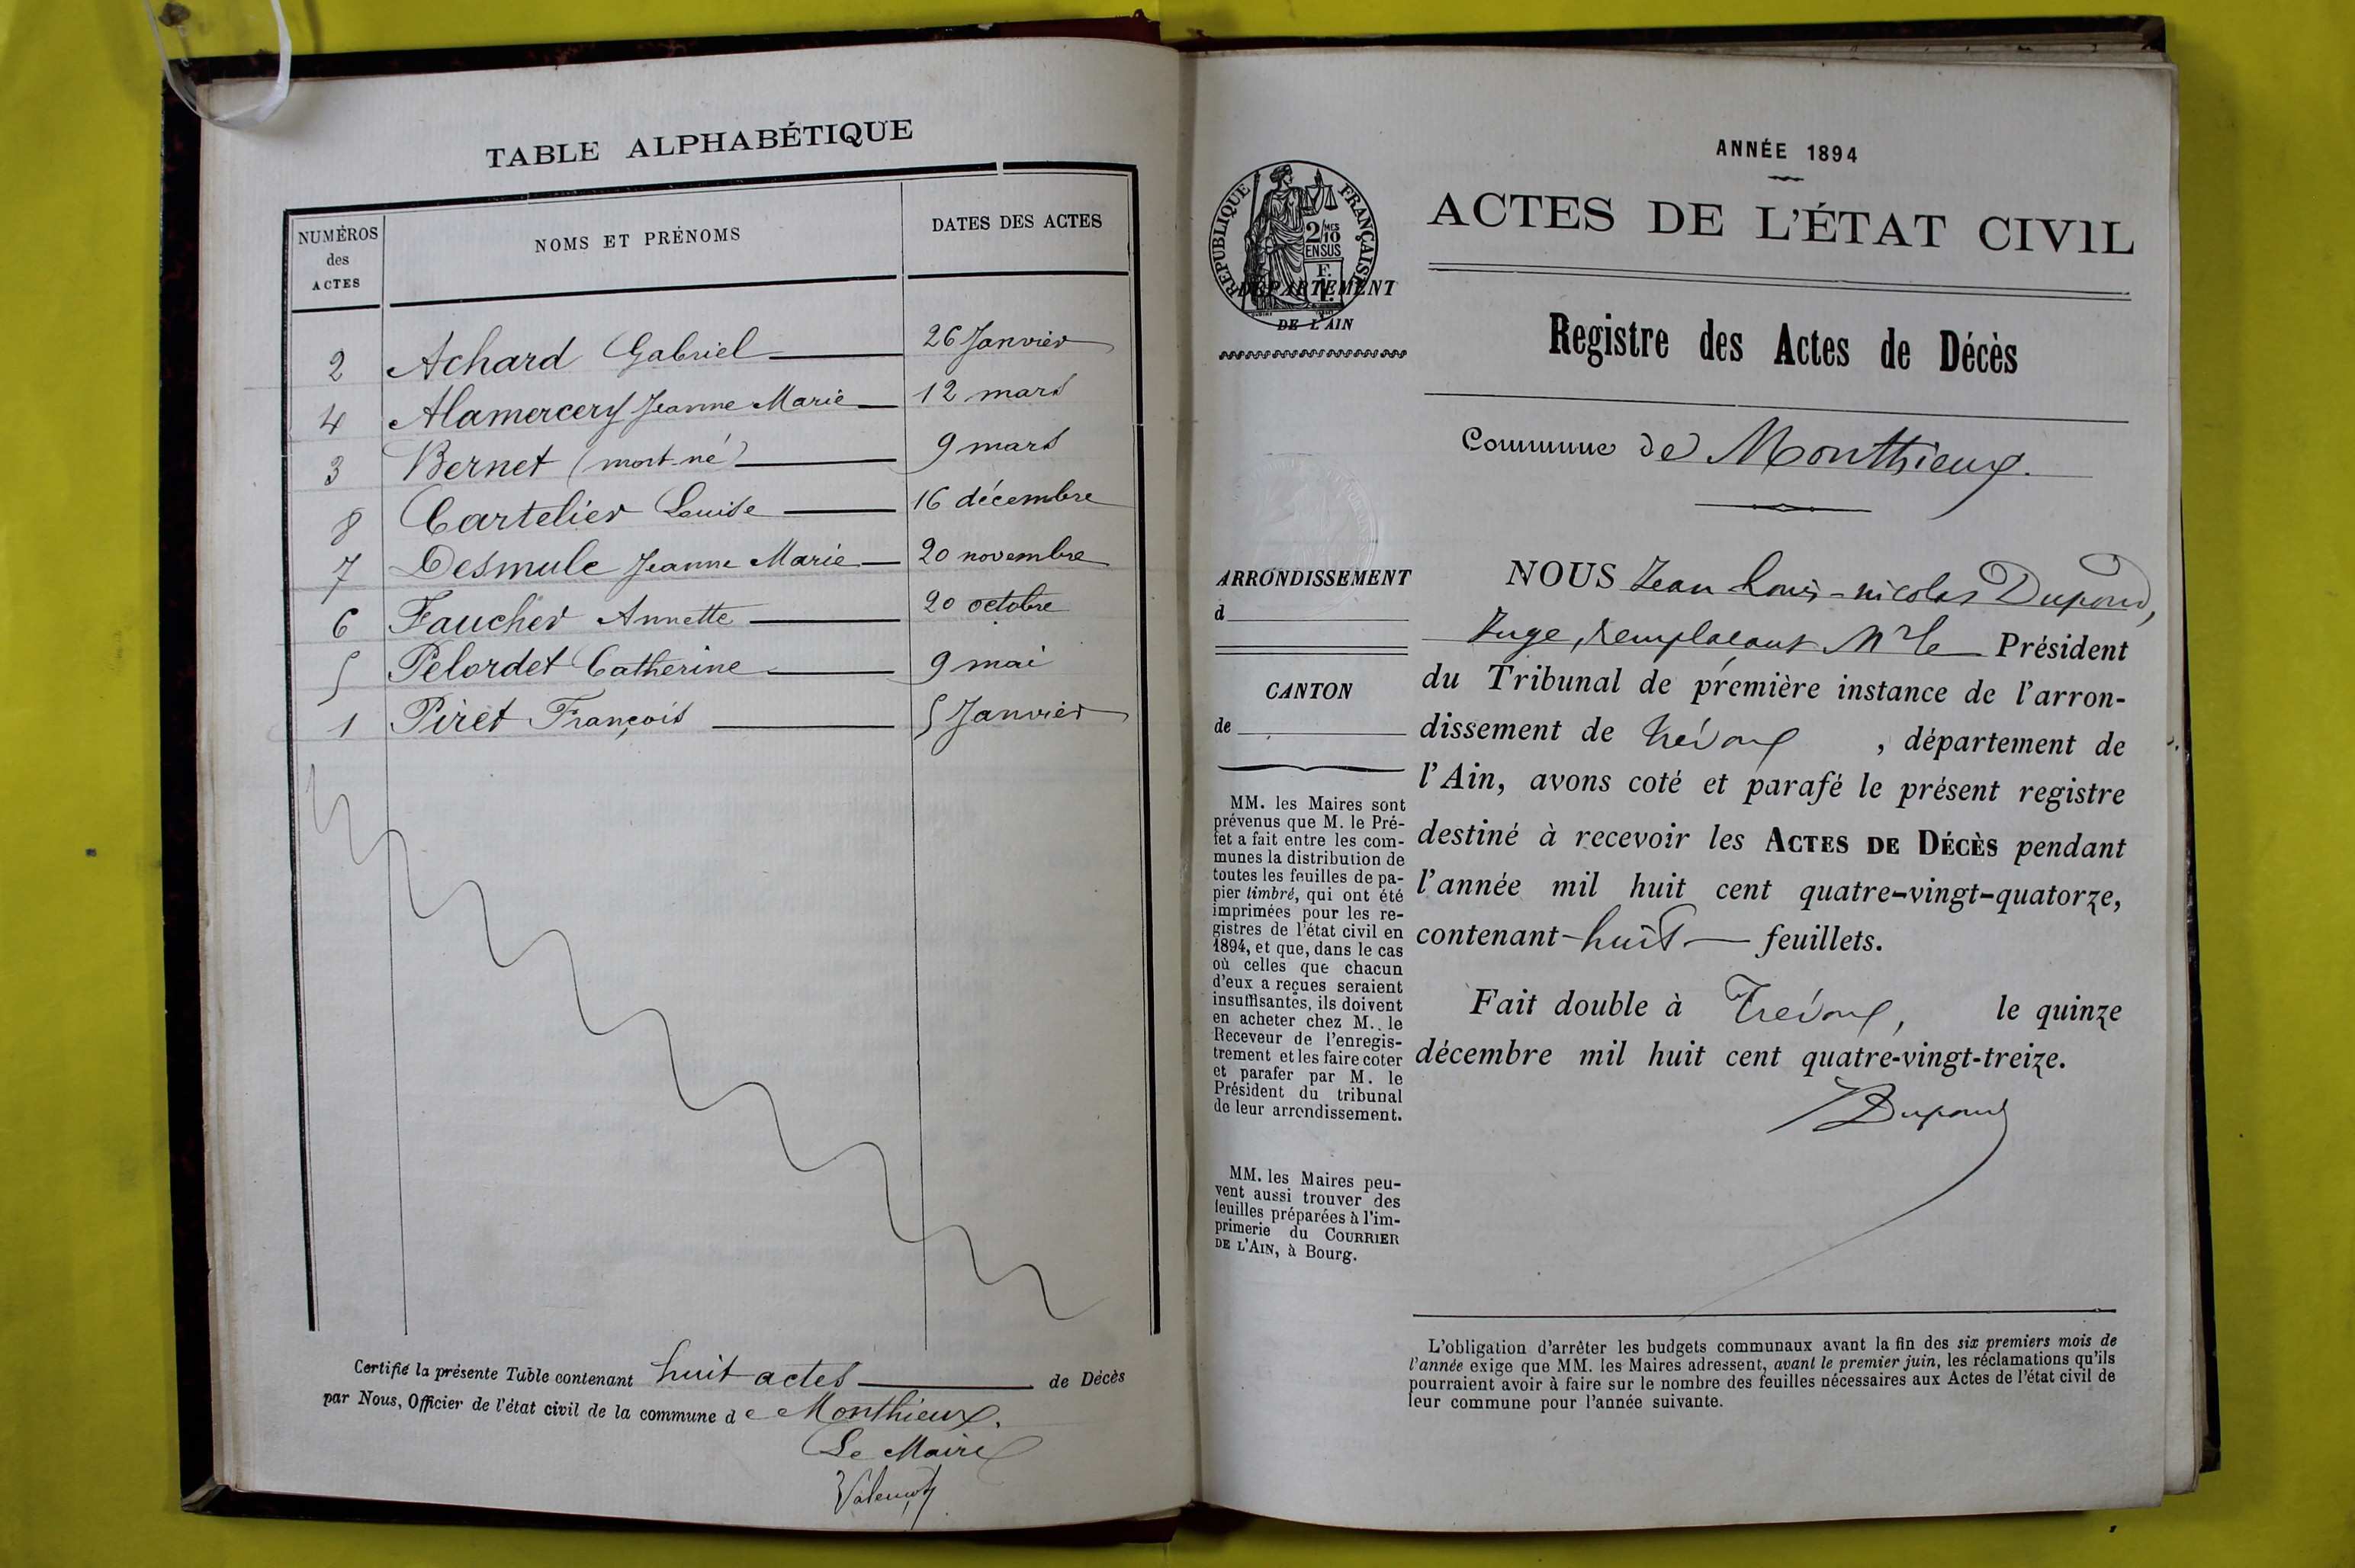 TABLE ALPHABÉTIQUE
NUMÉROS des ACTES
NOMS ET PRÉNOMS
DATES DES ACTES
2 Achard Gabriel 26 Janvier
4 Alamercery Jeanne Marie 12 mars
3 Bernet (mort-né) 9 mars
8 Cartelier Louise 16 décembre
7 Desmule Jeanne Marie 20 novembre
6 Faucher Annette 20 octobre
5 Pelordet Catherine 9 mai
1 Piret François 5 Janvier
Certifié la présente Table contenant huit actes de Décès
par Nous, Officier de l'état civil de la commune de Monthieux.
Le Maire
ANNÉE 1894
ACTES DE L'ÉTAT CIVIL
RÉPUBLIQUE FRANÇAISE
2/10 MES
EN SUS
DÉPARTEMENT
DE L'AIN
Registre des Actes de Décès
Commune de Monthieux.
ARRONDISSEMENT
d
CANTON
de
MM. les Maires sont
prévenus que M. le Pré-
fet a fait entre les com-
munes la distribution de
toutes les feuilles de pa-
pier timbré, qui ont été
imprimées pour les re-
gistres de l'état civil en
1894, et que, dans le cas
où celles que chacun
d'eux a reçues seraient
insuffisantes, ils doivent
en acheter chez M. le
Receveur de l'enregis-
trement et les faire coter
et parafer par M. le
Président du tribunal
de leur arrondissement.
MM. les Maires peu-
vent aussi trouver des
feuilles préparées à l'im-
primerie du COURRIER
DE L'AIN, à Bourg.
NOUS Jean Louis-nicolas Dupond,
Juge, remplacant Mr le Président
du Tribunal de première instance de l'arron-
dissement de Trévoux, département de
l'Ain, avons coté et parafé le présent registre
destiné à recevoir les ACTES DE DÉCÈS pendant
l'année mil huit cent quatre-vingt-quatorze,
contenant huit feuillets.
Fait double à Trévoux, le quinze
décembre mil huit cent quatre-vingt-treize.
Dupond
L'obligation d'arrêter les budgets communaux avant la fin des six premiers mois de
l'année exige que MM. les Maires adressent, avant le premier juin, les réclamations qu'ils
pourraient avoir à faire sur le nombre des feuilles nécessaires aux Actes de l'état civil de
leur commune pour l'année suivante.